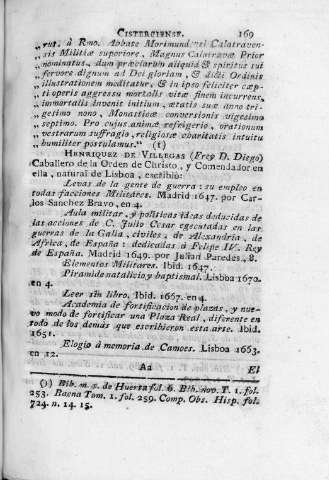 CISTERCIENSE. 169
„rui, à Rmo. Abbate Morimundensi Calatraven-
„sis Militiæ superiore, Magnus Calatravæ Prior
„nominatus, dum præclarum aliquid & spiritus sui
„fervore dignum ad Dei gloriam, & dicti Ordinis
„illustrationem meditatur, & in ipso feliciter cæp-
„ti operis aggressu mortalis vitæ finem incurrens,
„immortalis invenit initium, ætatis suæ anno tri-
„gesimo nono, Monasticæ conversionis vigesimo
„septimo. Pro cujus animæ refrigerio, orationum
„vestrarum suffragio, religiosæ charitatis intuitu
„humiliter postulamus. (1)
HENRIQUEZ DE VILLEGAS (Frey D. Diego)
Caballero de la Orden de Christo, y Comendador en
ella, natural de Lisboa, escribió:
Levas de la gente de guerra: su empleo en
todas facciones Militares. Madrid 1647. por Car-
los Sanchez Bravo, en 4.
Aula militar, y políticas ideas deducidas de
las acciones de C. Julio Cesar egecutadas en las
guerras de la Galia, civiles, de Alexandria, de
Africa, de España: dedicadas á Felipe IV. Rey
de España. Madrid 1649. por Julian Paredes, 8.
Elementos Militares. Ibid. 1647.
Piramide natalicio y baptismal. Lisboa 1670.
en 4.
Leer sin libro. Ibid. 1667. en 4.
Academia de fortificacion de plazas, y nue-
vo modo de fortificar una Plaza Real, diferente en
todo de los demás que escribieron esta arte. Ibid.
1651.
Elogio á memoria de Camoes. Lisboa 1663.
en 12.
Aa El
(1) Bib. m. s. de Huerta fol. 6. Bib. nov. T. 1. fol.
253. Baena Tom. 1. fol. 259. Comp. Obs. Hisp. fol.
724. n. 14. 15.